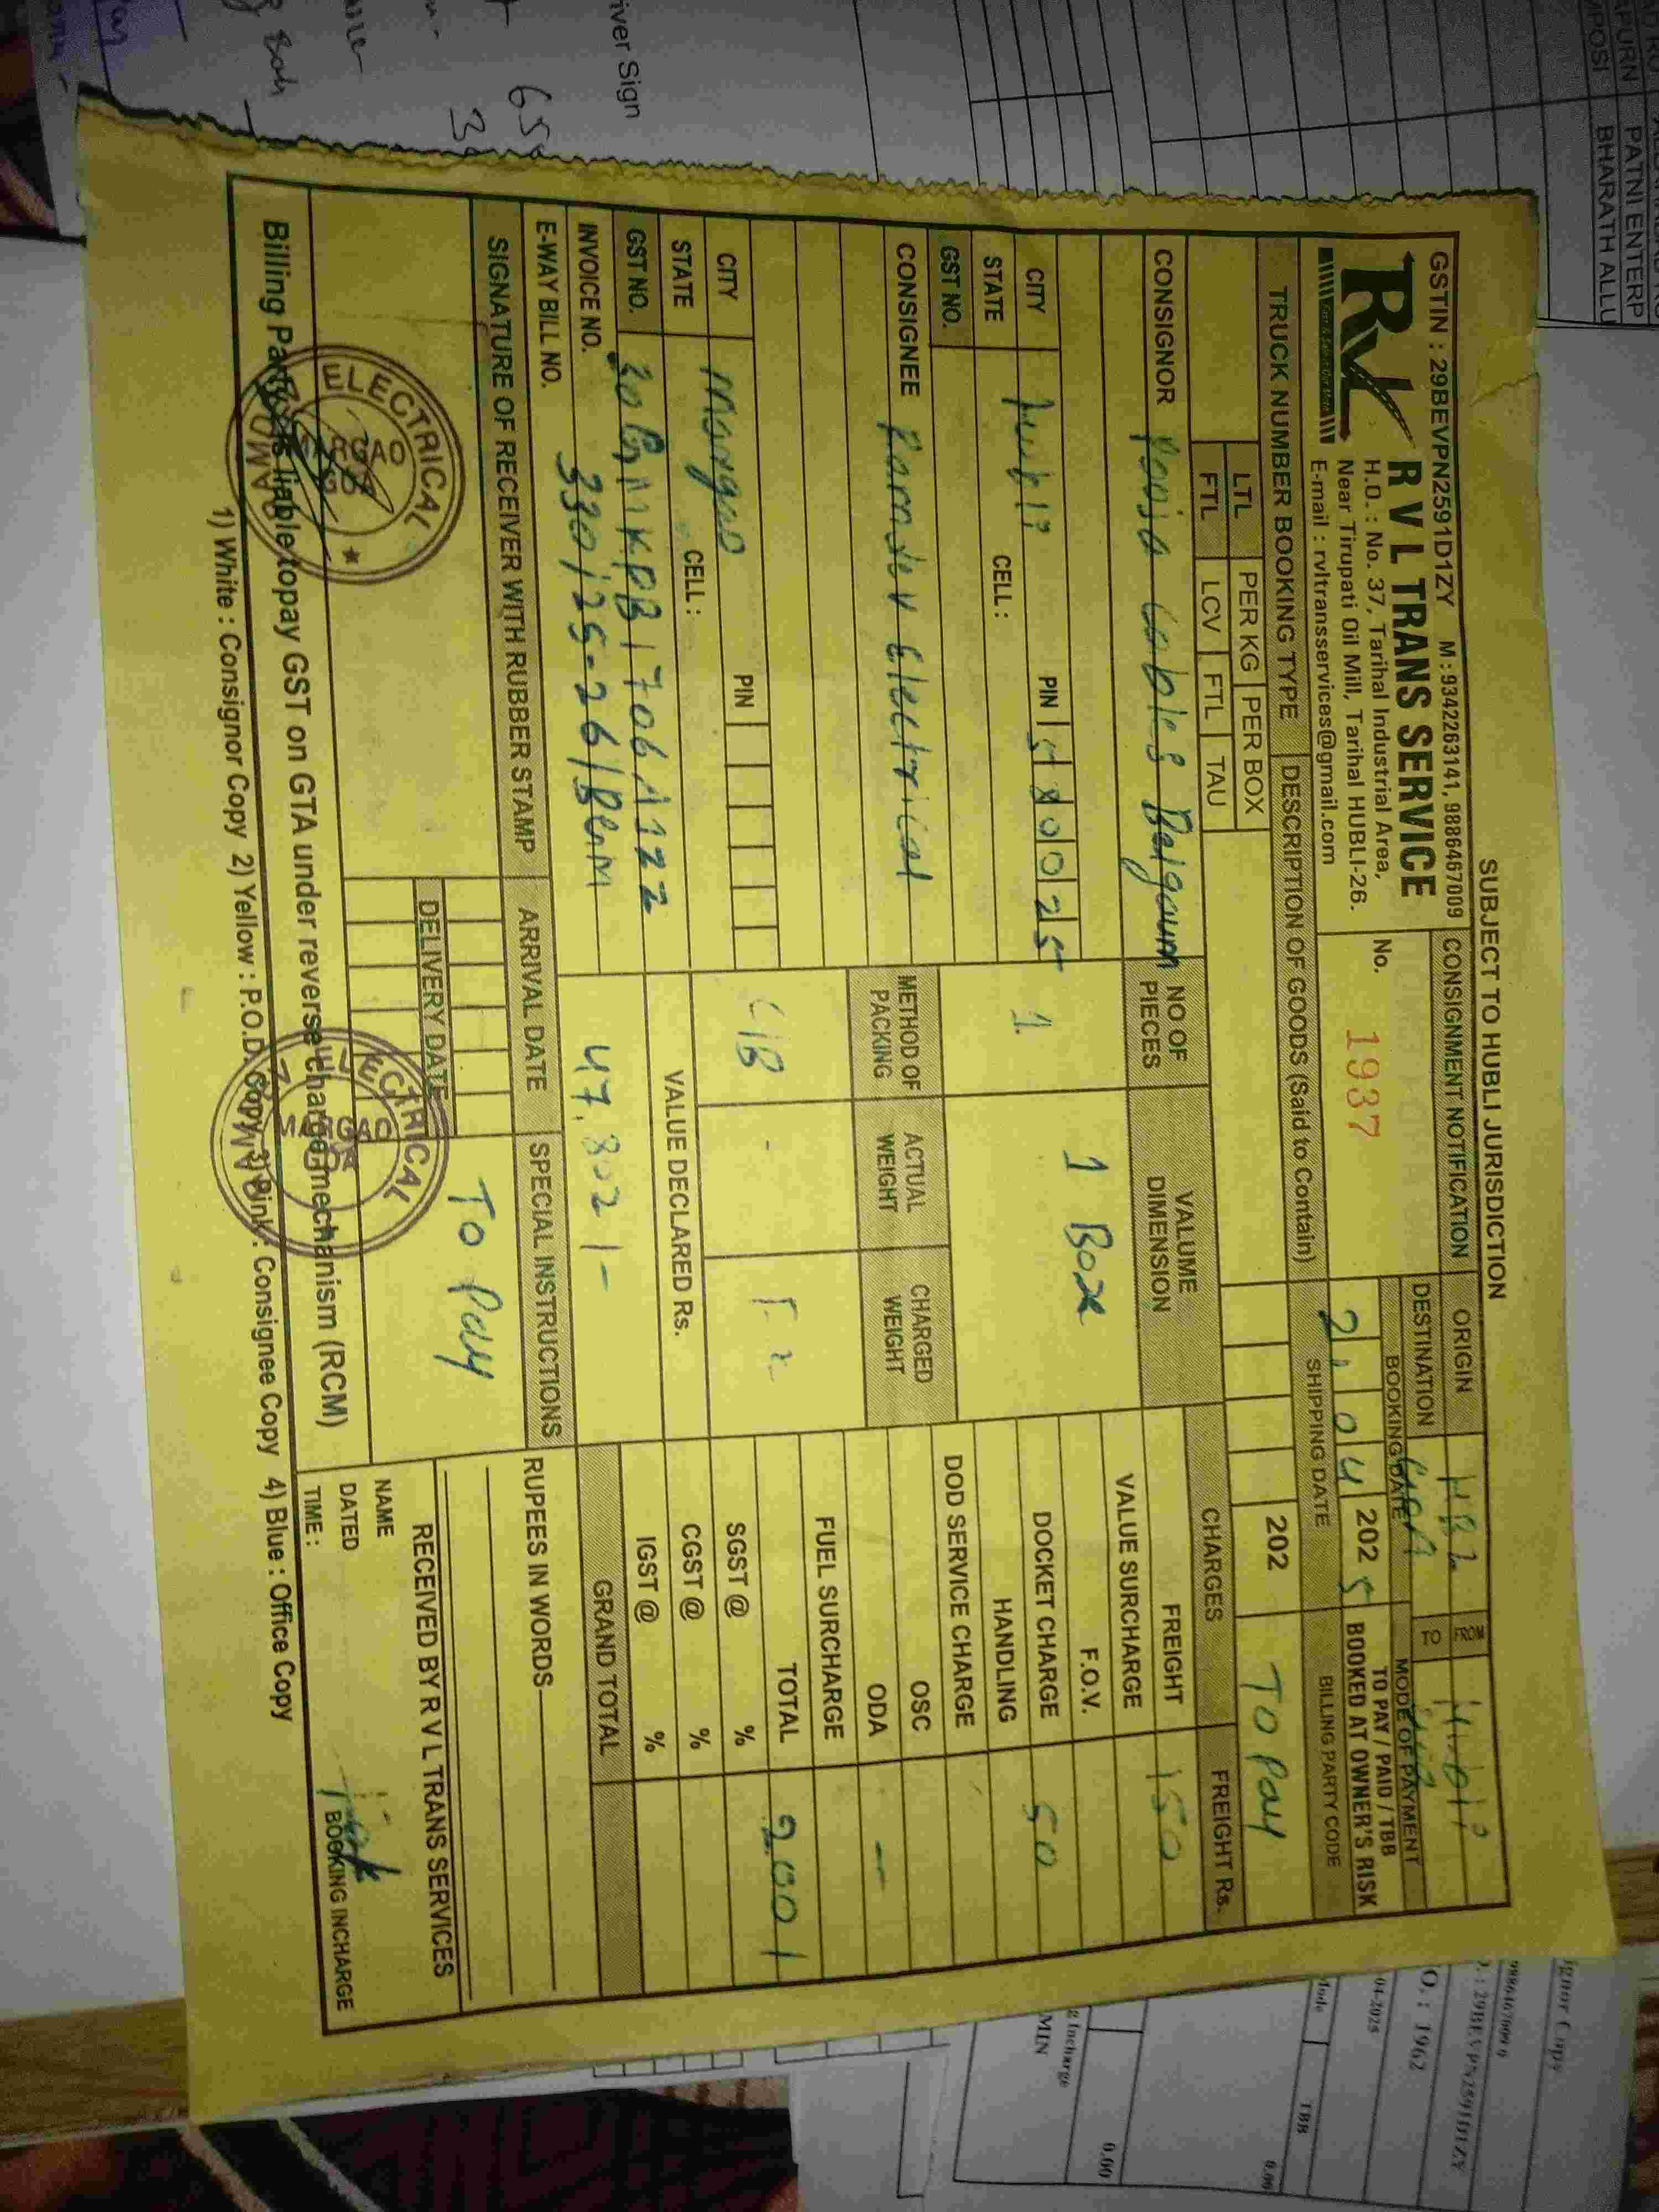 SUBJECT TO HUBLI JURISDICTION
GSTIN : 29BEVPN2591D1ZY M : 9342263141, 9886467009
RVL
R V L TRANS SERVICE
H.O. : No. 37, Tarihal Industrial Area,
Near Tirupati Oil Mill, Tarihal HUBLI-26.
E-mail : rvltransservices@gmail.com
CONSIGNMENT NOTIFICATION
No. 1937
ORIGIN HBL FROM Hubli
DESTINATION GOA TO
BOOKING DATE MODE OF PAYMENT
21 04 2025 TO PAY / PAID / TBB
BOOKED AT OWNER'S RISK
SHIPPING DATE BILLING PARTY CODE
202 TO Pay
TRUCK NUMBER BOOKING TYPE DESCRIPTION OF GOODS (Said to Contain)
LTL PER KG PER BOX
FTL LCV FTL TAU
CHARGES FREIGHT Rs.
CONSIGNOR Pooja Cables Belgaum
NO OF PIECES VALUME DIMENSION
1 1 Box
FREIGHT 150
VALUE SURCHARGE
F.O.V.
DOCKET CHARGE 50
HANDLING
DOD SERVICE CHARGE
OSC
ODA —
FUEL SURCHARGE
TOTAL 200/
SGST @ %
CGST @ %
IGST @ %
GRAND TOTAL
CITY Hubli PIN 580025
STATE CELL :
GST NO.
CONSIGNEE Ramdev Electrical
METHOD OF PACKING ACTUAL WEIGHT CHARGED WEIGHT
C/B -
CITY Margao PIN
STATE CELL :
GST NO. 30BNKPB1706A1ZZ
VALUE DECLARED Rs.
INVOICE NO. 330/25-26/BGM
47,802/-
E-WAY BILL NO.
SIGNATURE OF RECEIVER WITH RUBBER STAMP ARRIVAL DATE SPECIAL INSTRUCTIONS
TO Pay
DELIVERY DATE
RUPEES IN WORDS
RECEIVED BY R V L TRANS SERVICES
NAME
DATED
TIME :
BOOKING INCHARGE
ELECTRICAL
MARGAO
ELECTRICAL
Billing Party is liable topay GST on GTA under reverse charge mechanism (RCM)
1) White : Consignor Copy 2) Yellow : P.O.D. Copy 3) Pink : Consignee Copy 4) Blue : Office Copy
iver Sign
PATNI ENTERP
BHARATH ALLU
APURN
MPOSI
O. : 1962
04-2025
TBB
0.00
0.00
g Incharge
MIN